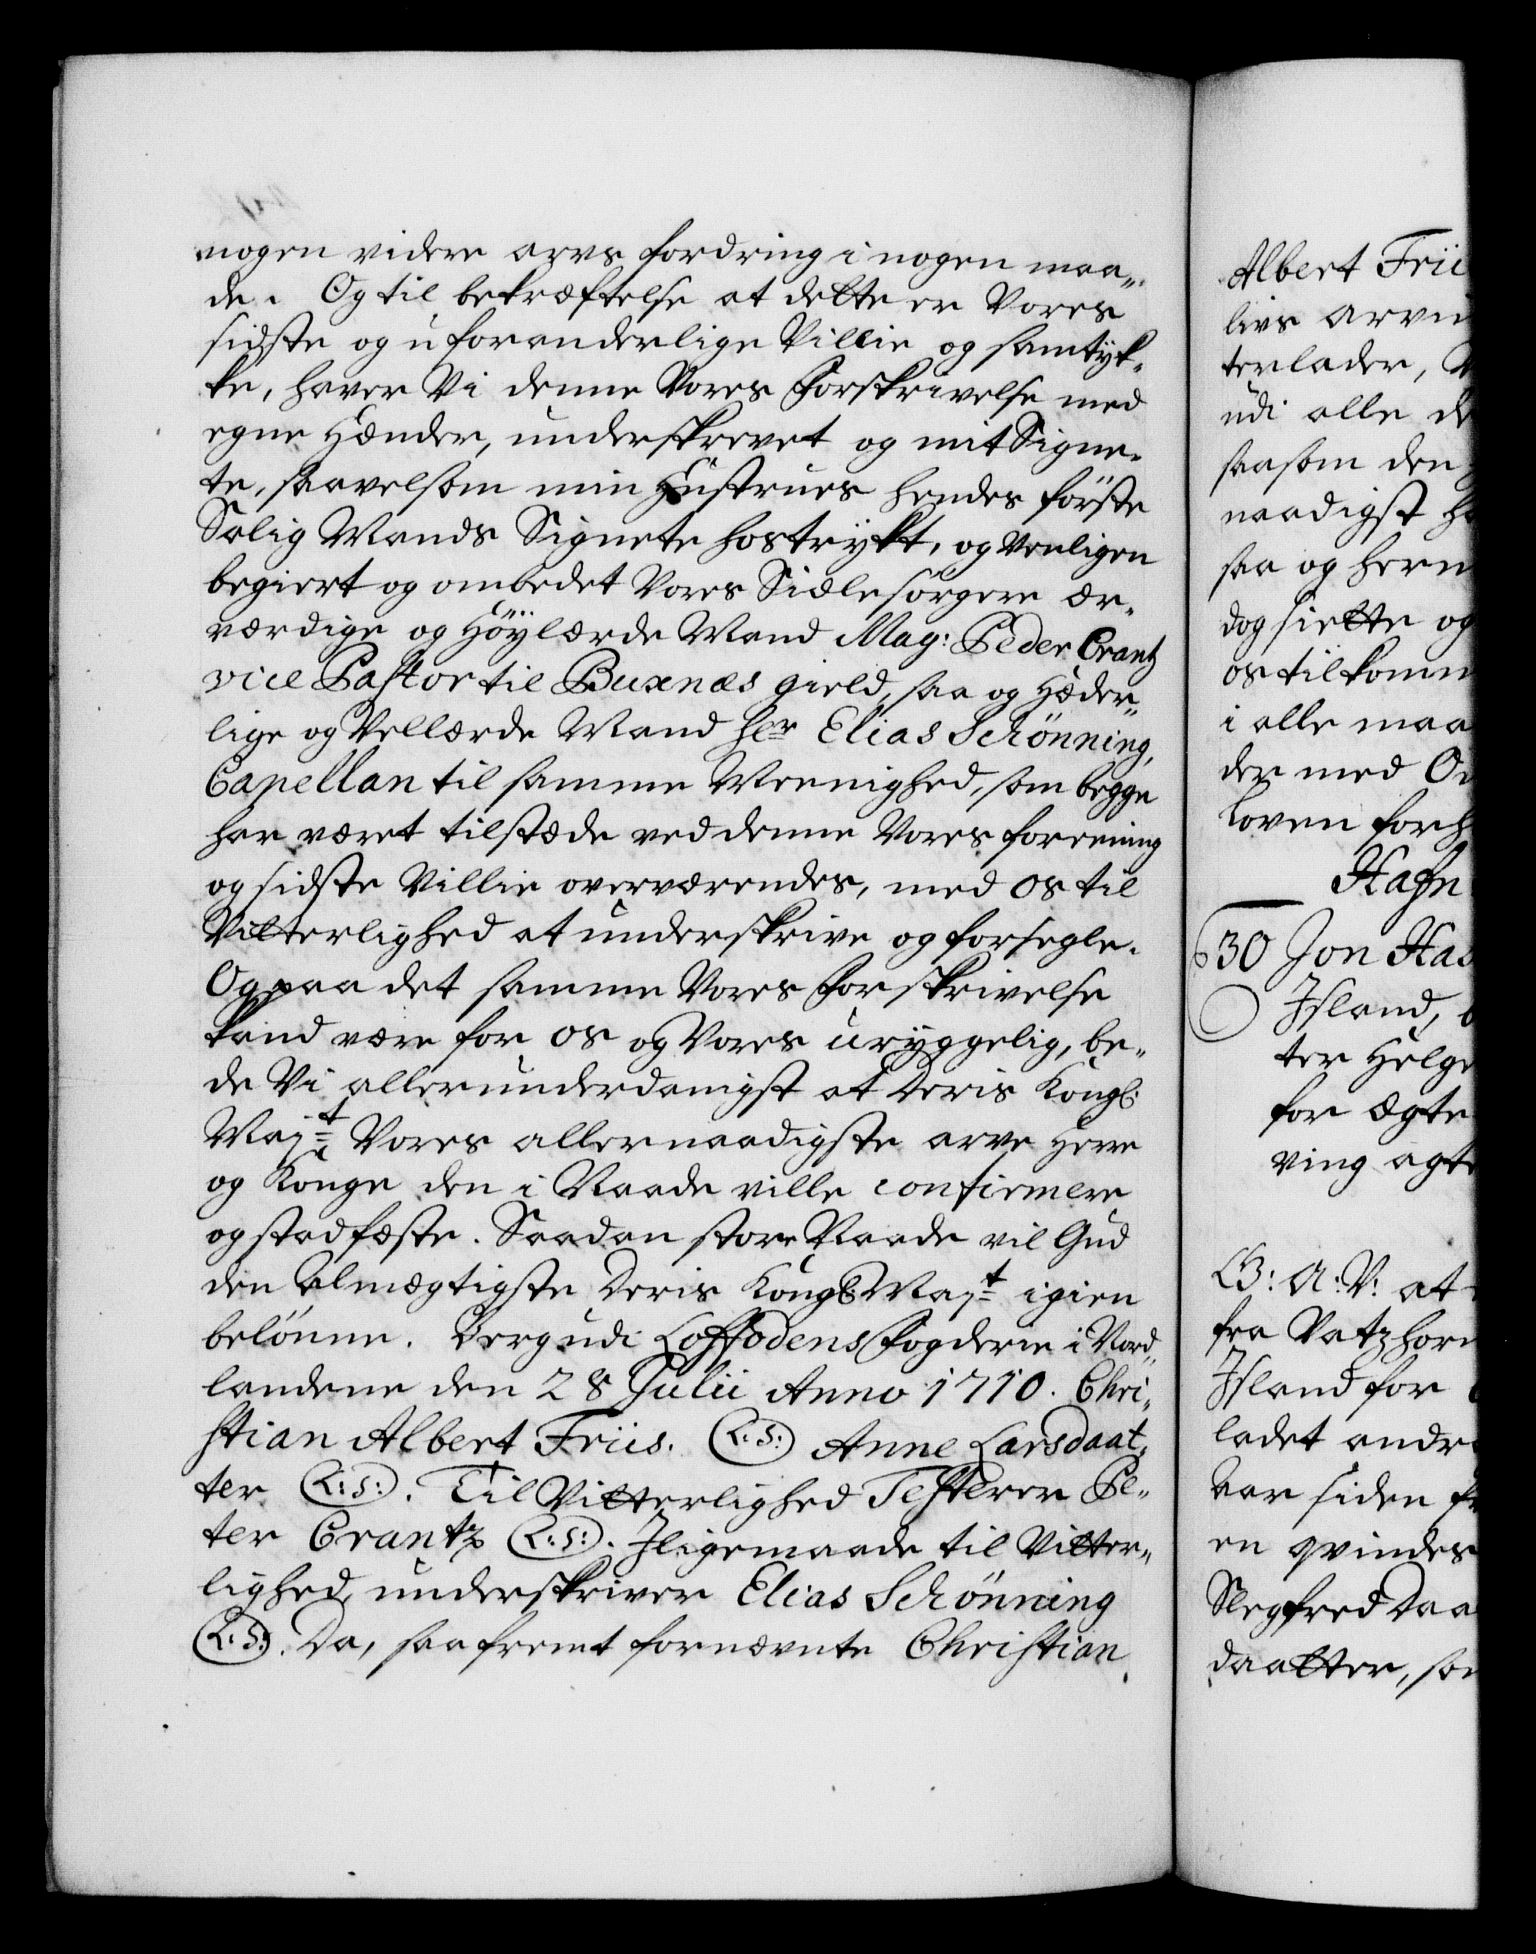 nogen videre arvs fordring i nogen maa„
de. Og til bekræftelse at dette er Vores
sidste og uforanderlige Villie og samtyk„
ke, haver Vi denne Vores Forskrivelse med
egne Hænder, underskrevet og mit Signe„
te, saavelsom min Hustrues hendes förste
Salig Mands Signete hostrykt, og venligen
begiert og ombedet Vores Siælesörgere ær„
værdige og Höylærde Mand Mag: Peder Crantz
vice Pastor til Buxnæs gield, saa og Hæder„
lige og Vellærde Mand Her Elias Schönning,
Capellan til samme Meenighed, som begge
har været tilstæde ved denne Vores foreening
og sidste Villie overværendes, med os til
Vitterlighed at underskrive og forsegle.
Og paa det samme Vores Forskrivelse
kand være for os og Vores uryggelig, be„
de Vi allerunderdanigst at Deris Kongl:
Majt Vores allernaadigste arve Herre
og Konge den i Naade ville confirmere
og stadfæste. Saadan store Naade vil Gud
den Almægtigste Deris Kongl Majt igien
belönne. Berg udi Loffodens Fogderie i Nord„
landene den 28 Julii Anno 1710. Chri„
stian Albert Friis. (L.S.) Anne Larsdaat„
ter (L:S:). Til Vitterlighed Testerer Pe„
ter Crantz (L:S:). Jligemaade til Vitter„
lighed, underskriver Elias Schönning
(L.S.). Da, saafremt fornævnte Christian
Albert Frii
livs arvi
terlader, V
udi alle de
saasom den
naadigst ha
saa og hern
dog siette og
os tilkomm
i alle maa
der med O
Loven forh
Hafn
30 Jon Has
Jsland, b
ter Helge
for Ægte
ving agte
G: A: V: at
fra Vatzhorn
Jsland for
ladet andr
var siden fr
en qvindes
Slegfred Daa
daatter, som